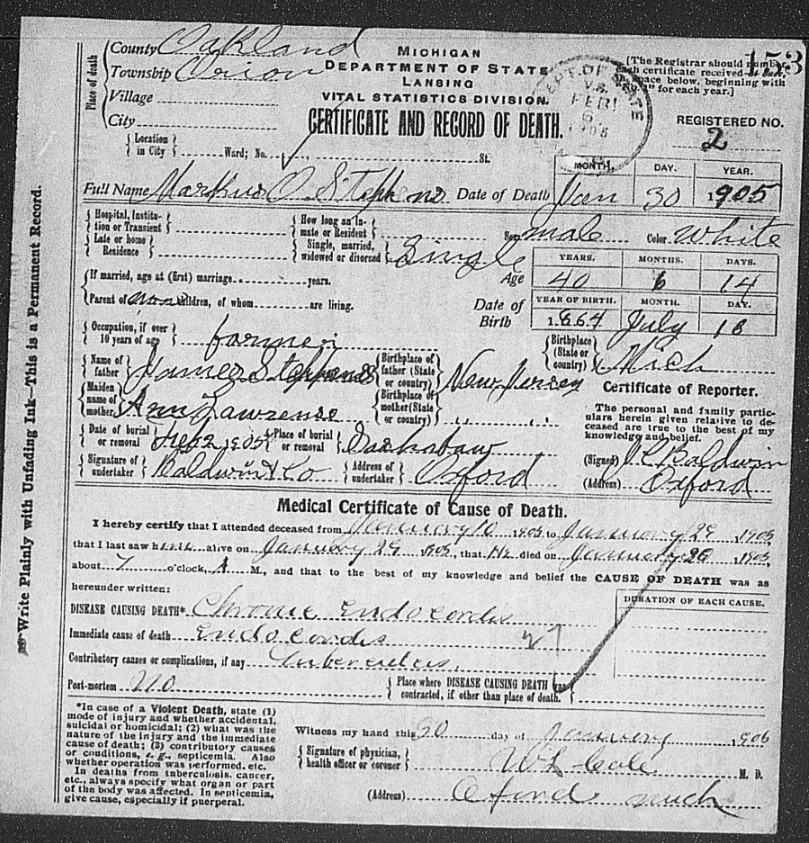 153
County Oakland
Township Orion
Village
City
Place of death
MICHIGAN
DEPARTMENT OF STATE
LANSING
VITAL STATISTICS DIVISION.
CERTIFICATE AND RECORD OF DEATH.
DEPT. OF STATE
V.S.
FEB
[The Registrar should number
each certificate received
space below, beginning with
for each year.]
REGISTERED NO.
2
Location in City Ward; No. St.
Full Name Markus O. Stephens Date of Death
MONTH. DAY. YEAR.
Jan 30 1905
Hospital, Institution or Transient
Late or home Residence
How long an Inmate or Resident
Single, married, widowed or divorced Single
Sex male Color White
Age
YEARS. MONTHS. DAYS.
40 6 14
If married, age at (first) marriage years.
Parent of children, of whom are living.
Date of Birth
YEAR OF BIRTH. MONTH. DAY.
1864 July 16
Occupation, if over 10 years of age farmer
Birthplace (State or country) Mich
Name of father Stephens
Birthplace of father (State or country) New Jersey
Maiden name of mother Ann Lawrense
Birthplace of mother (State or country) " "
Certificate of Reporter.
The personal and family particulars herein given relative to deceased are true to the best of my knowledge and belief.
Date of burial or removal 1905 Place of burial or removal
Signature of undertaker Baldwin & Co Address of undertaker Oxford
(Signed) Baldwin
(Address) Oxford
Write Plainly with Unfading Ink—This is a Permanent Record.
Medical Certificate of Cause of Death.
I hereby certify that I attended deceased from January 10 1905 to January 29 1905,
that I last saw him alive on January 29 1905, that He died on January 1905,
about 7 o'clock, A M., and that to the best of my knowledge and belief the CAUSE OF DEATH was as
hereunder written:
DURATION OF EACH CAUSE.
DISEASE CAUSING DEATH* Chronic Endocordis
Immediate cause of death Endocordis
Contributory causes or complications, if any Tuberculcis
Post-mortem no
Place where DISEASE CAUSING DEATH was contracted, if other than place of death.
*In case of a Violent Death, state (1)
mode of injury and whether accidental,
suicidal or homicidal; (2) what was the
nature of the injury and the immediate
cause of death; (3) contributory causes
or conditions, e.g., septicemia. Also
whether operation was performed, etc.
In deaths from tuberculosis, cancer,
etc., always specify what organ or part
of the body was affected. In septicemia,
give cause, especially if puerperal.
Witness my hand this 30 day of January 1905
Signature of physician, health officer or coroner Cole M. D.
(Address) Oxford Mich